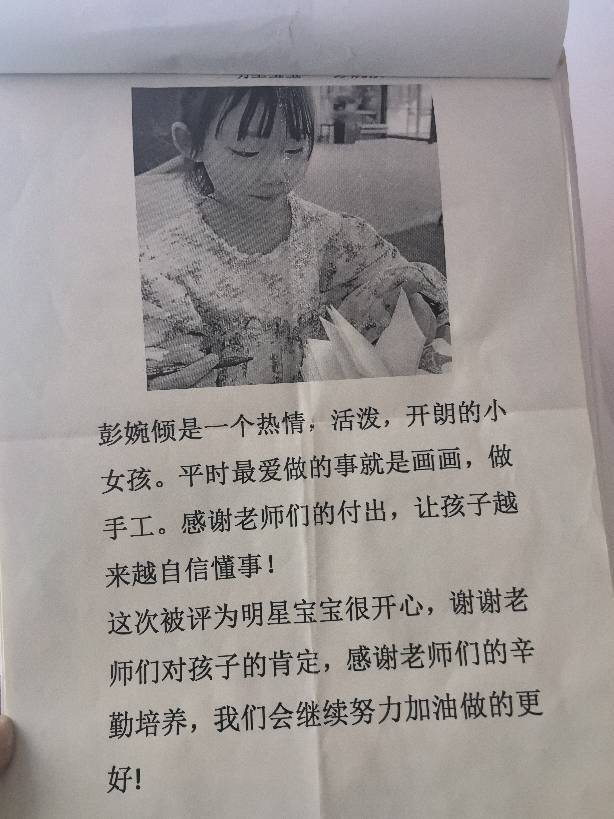 彭婉倾是一个热情，活泼，开朗的小
女孩。平时最爱做的事就是画画，做
手工。感谢老师们的付出，让孩子越
来越自信懂事！
这次被评为明星宝宝很开心，谢谢老
师们对孩子的肯定，感谢老师们的辛
勤培养，我们会继续努力加油做的更
好！